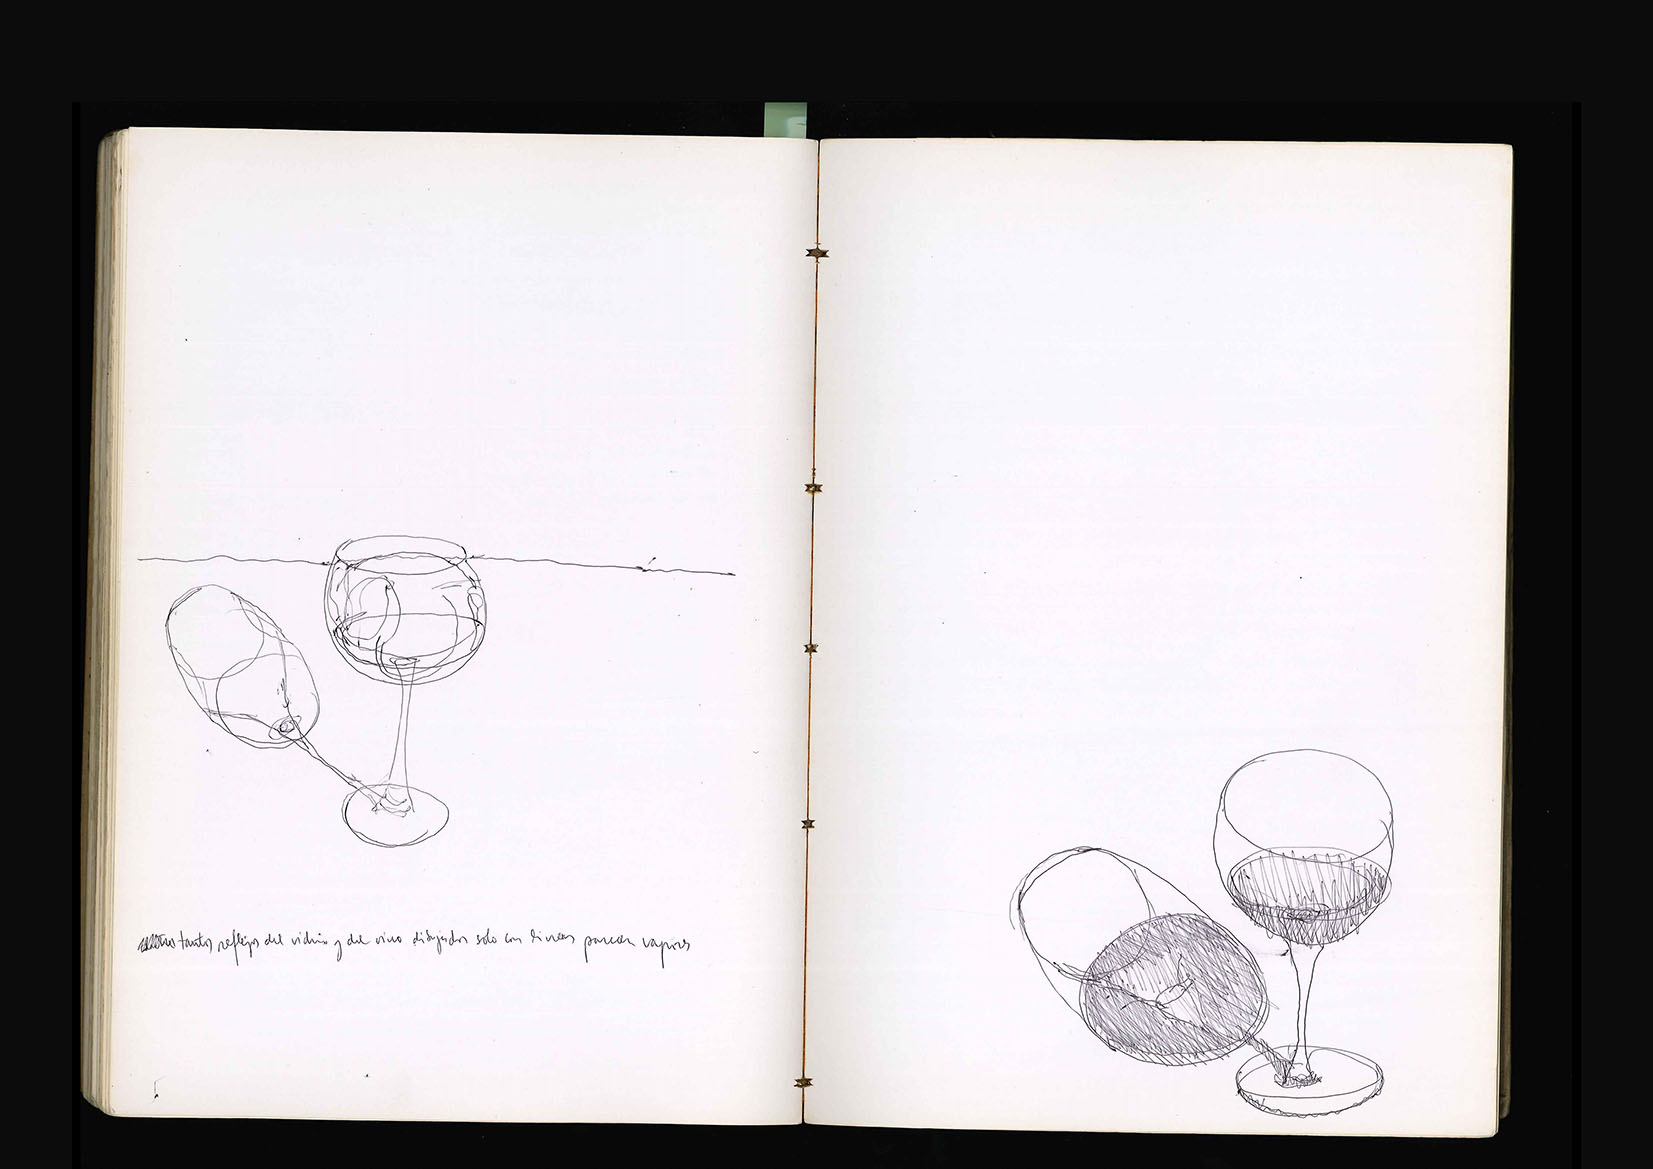 tantos reflejos del vidrio y del vino dibujados solo con líneas parecen vapores